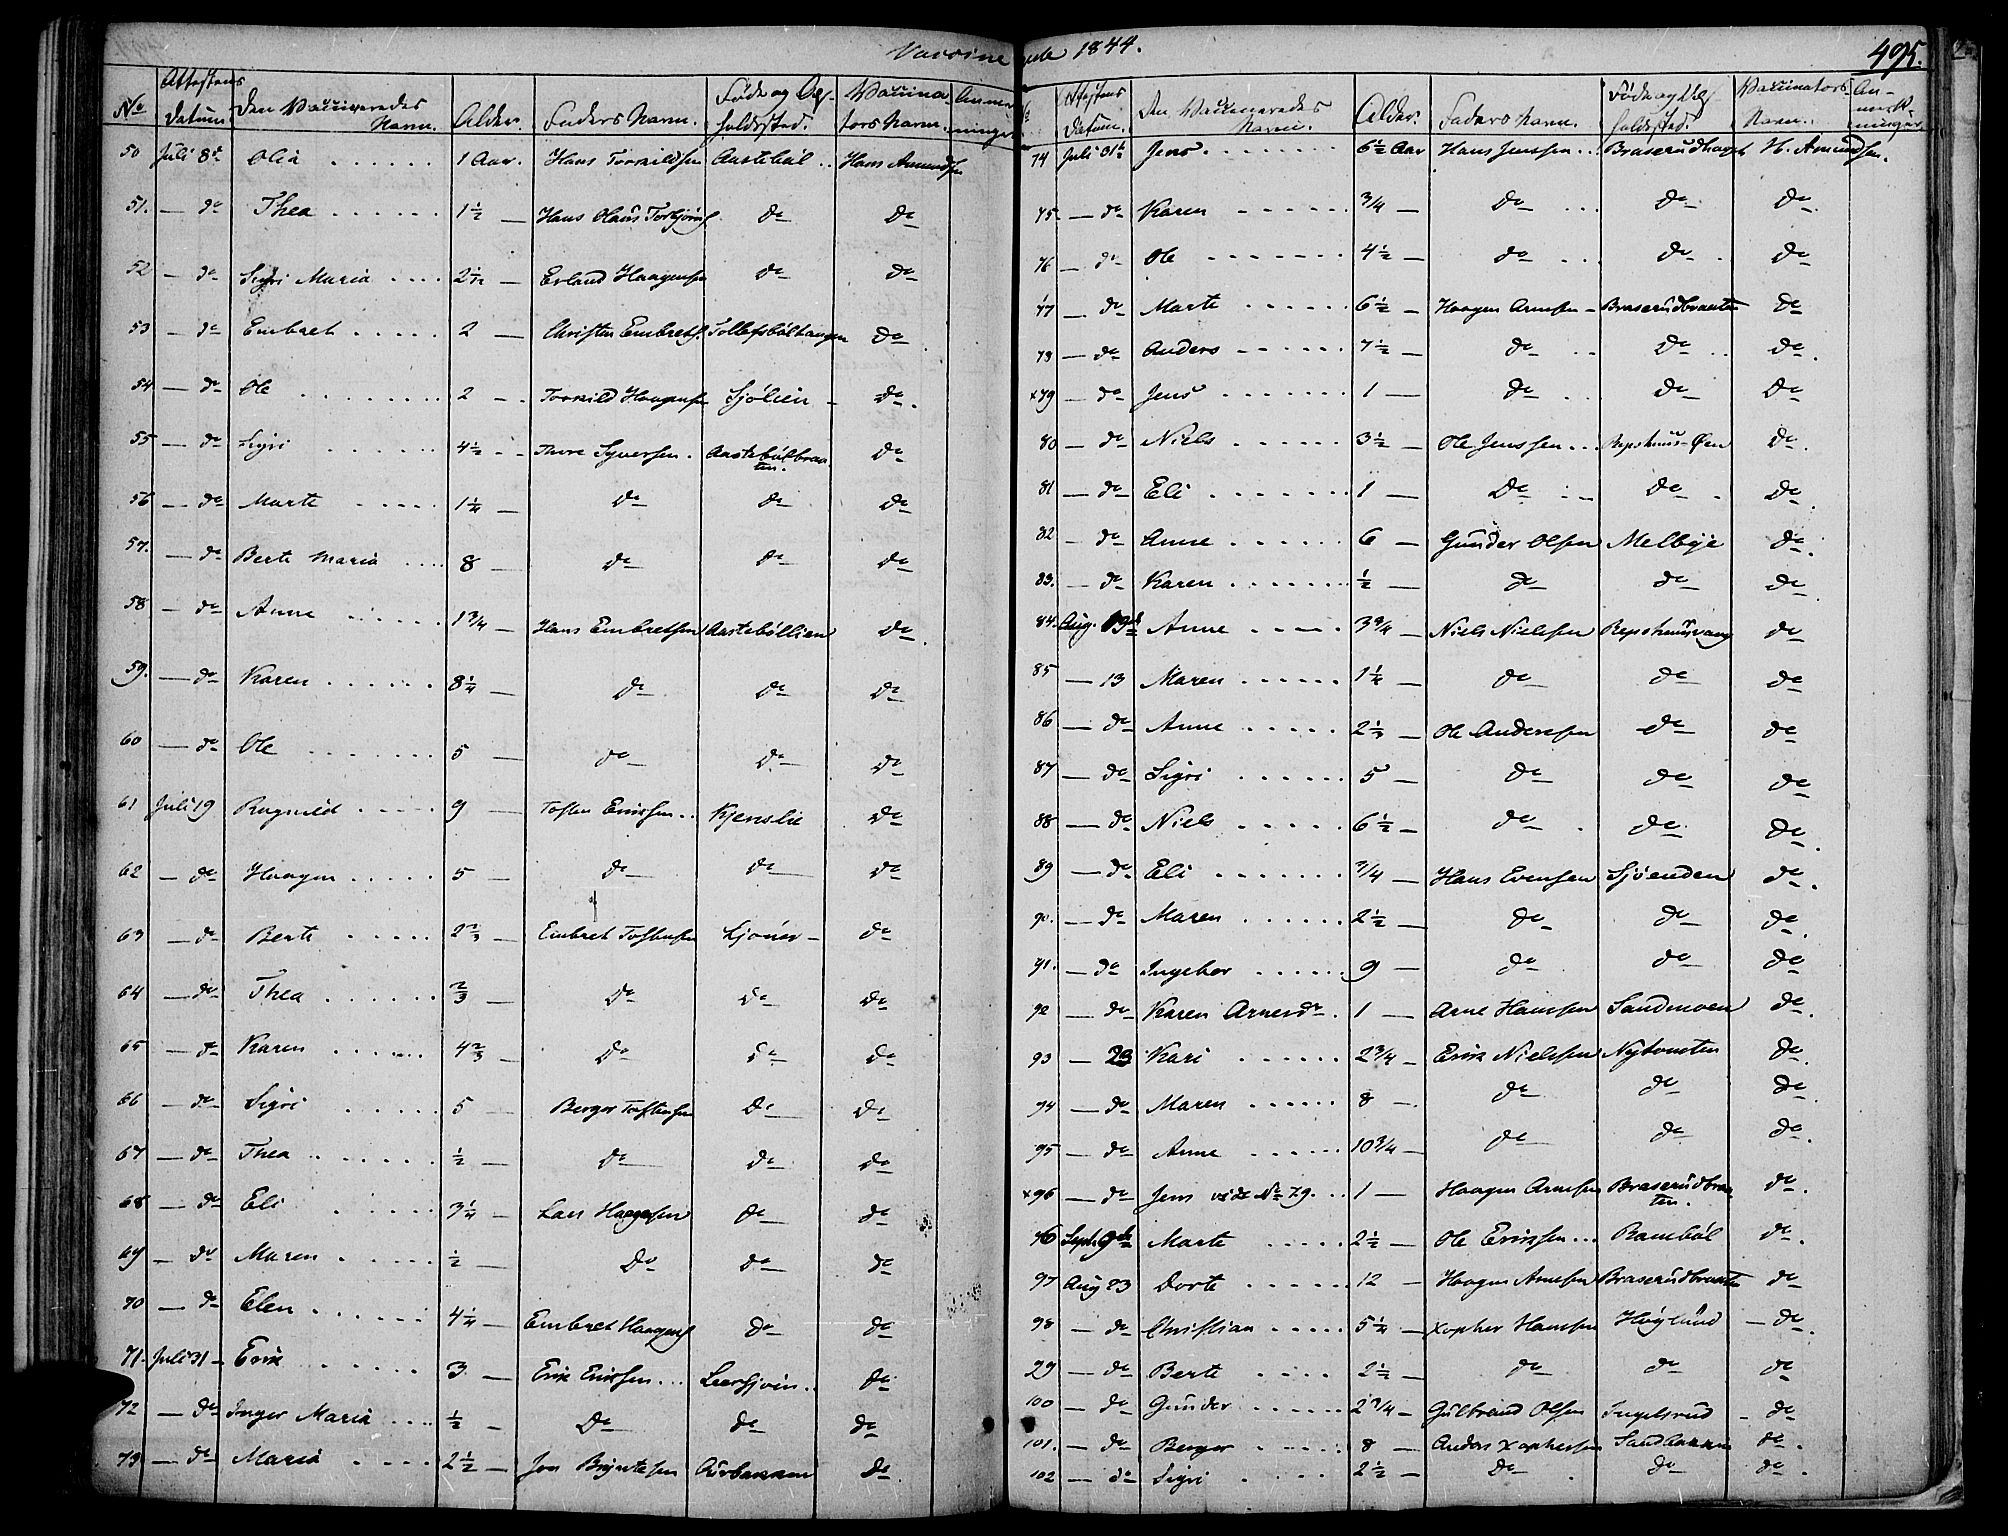 Vaccinerede 1844.
495.
No Attestens Datum. Den Vaccineredes Navn. Alder. Faders Navn. Føde og Opholdssted. Vaccinators Navn. Anmærkninger
50 Juli 8de Olia 1 Aar. Hans Torkildsen Aastebøl Hans Amundsen
51. — do Thea 1½ — Hans Olaus Torbjørns. do do
52 — do Sigri Maria — Erland Haagensen do do
53 — do Embret 2 — Christen Embrets. Tollefsbølhaugen do
54 — do Ole 2 — Torkild Haagensen Sjølien do.
55 — do Sigri 4½ Thore Syversen. Aastebølbraaten. do
56 — do Marte 1¼ — do do do
57. — do Berte Maria 8 — do do do
58 — do Anne 1¾ — Hans Embretsen Aastebøllien do
59. — do Karen 8¼ — do do do
60 — do Ole 5 — do do do
61 Juli 19 Ragnild 9 — Tosten Erikssen Kjenslie do
62 — do Haagen 5 — do do do
63 — do Berte 2⅔ — Embret Tostensen do
64 — do Thea ⅔ — do do do
65 — do Karen 4⅔ — do do do
66 — do Sigri 5 Berger Tostensen do do
67 — do Thea ½ — do do do
68 — do Eli 3¼ — Lars Haagensen do do
69 — do Maren ½ — do do do
70 — do Elen 4¼ — Embret Haagens. do do
71. Juli 31 — Erik 3 — Erik Erikssen do
72 — do Inger Maria ½ — do do do
73 — do Maria 2½ — Jon do
No Attestens Datum. Den Vaccineredes Navn. Alder. Faders Navn. Føde og Opholdssted. Vaccinators Navn. Anmærkninger.
74 Juli 31te Jens 6½ Aar Hans Jenssen Braserudhaugen H. Amundsen.
75. — do Karen ¾ — do do do.
76 — do Ole 4½ — do do do
77 — do Marte 6½ — Haagen Arnesen — Braserudbraaten do
78 — do Anders 7½ — do do do.
x79 — do Jens 1 — do do do
80 — do Niels 3½ — Ole Jenssen Repshuus-Øen do.
81 — do Eli 1 — do do do.
82 — do Anne 6 — Gunder Olsen Melbye do.
83. — do Karen ½ — do do do
84. Aug. Anne 3¾ — Niels Nielssen Repshuusvang do
85 — 13 Maren 1½ — do do do
86 — do Anne — Ole Anderssen do do
87 — do Sigri 5 — do do do
88 — do Niels 6½ — do do do.
89 — do Eli ¾ — Hans Evensen Sjøenden do.
90. — do Maren 2½ — do do do.
91. — do Ingebor 9 — do do do
92 — do Karen Arnesdr. 1 — Arne Hanssen Sandmoen do.
93 — 23 Kari 2¾ — Erik Nielssen Nytomten do.
94 — do Maren 8 — do do do.
95 — do Anne 10¾ — do do do.
x96 — do Jens vide No 79. 1 — Haagen Arnesen Braserudbraaten. do.
96 Sept. 9de Marte 2½ — Ole Erikssen Rambøl do.
97 Aug 23 Dorte 12 — Haagen Arnesen Braserudbraaten do
98 — do Christian 5½ — Xopher Hanssen Høglund — do.
99 — do Berte 2½ — do do do
100 — do Gunder 2¾ — Gulbrand Olsen Ingelsrud — do
101. — do Berger 8 — Anders Xophersen Sandbakken do.
102 — do Sigri 2½ — do do do.